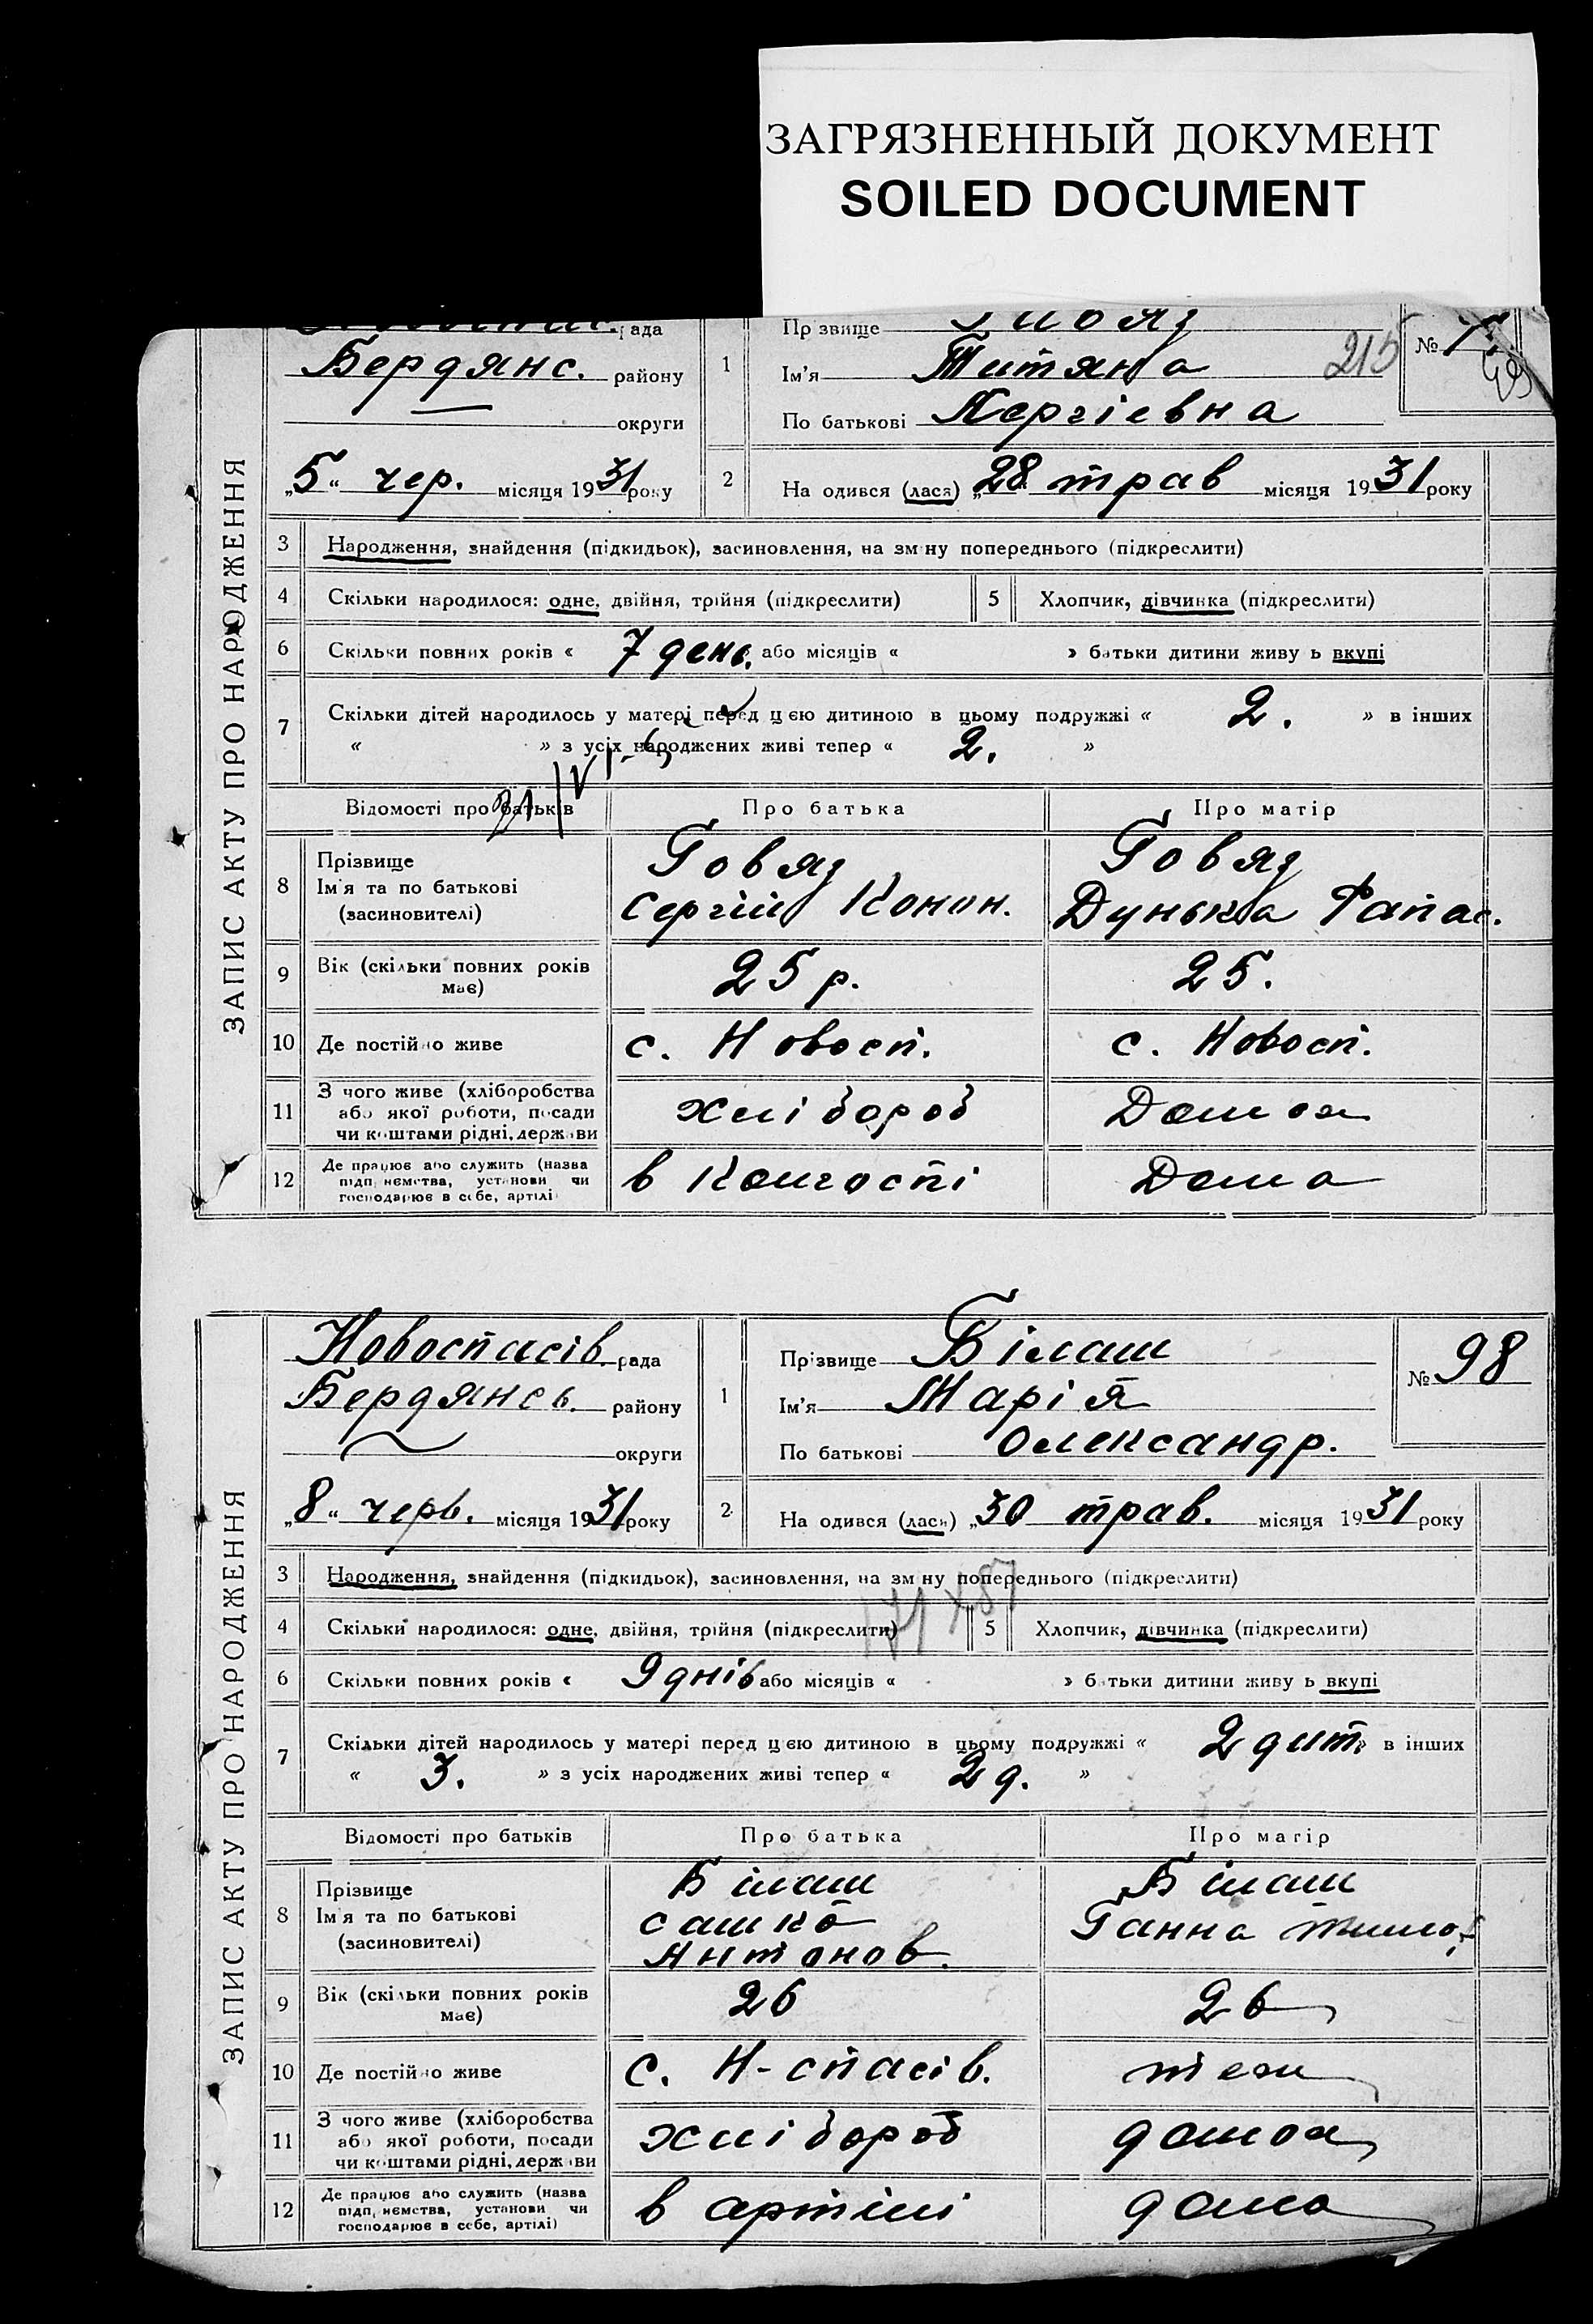 ЗАГРЯЗНЕННЫЙ ДОКУМЕНТ
SOILED DOCUMENT
ЗАПИС АКТУ ПРО НАРОДЖЕННЯ
рада
Бердянс. району
округи
„5“ чер. місяця 1931 року
1 Прізвище
Ім'я Титяна 215
По батькові Сергіевна
№
2 На одився (лася) „28 трав місяця 1931 року
3 Народження, знайдення (підкидьок), засиновлення, на зміну попереднього (підкреслити)
4 Скільки народилося: одне, двійня, трійня (підкреслити) 5 Хлопчик, дівчинка (підкреслити)
6 Скільки повних років « 7 день. або місяців « » батьки дитини живу ь вкупі
7 Скільки дітей народилось у матері перед цєю дитиною в цьому подружжі « 2. » в інших
« » з усіх народжених живі тепер « 2. »
Відомості про батьків Про батька Про матір
8 Прізвище
Ім'я та по батькові
(засиновителі)
Говяз
Сергій Конон.
Говяз
Дунька
9 Вік (скільки повних років має) 25 р. 25.
10 Де постійно живе с. Новосп. с. Новосп.
11 З чого живе (хліборобства
або якої роботи, посади
чи коштами рідні, держави
хлібороб Домог
12 Де працює або служить (назва
підпріємства, установи чи
господарює в себе, артілі
в Комгоспі Дома
ЗАПИС АКТУ ПРО НАРОДЖЕННЯ
Новоспасів рада
Бердянсь. району
округи
„8“ черв. місяця 1931 року
1 Прізвище Білаш
Ім'я Марія
По батькові Олександр.
№ 98
2 На одився (лася) „30 трав. місяця 1931 року
3 Народження, знайдення (підкидьок), засиновлення, на зміну попереднього (підкреслити)
4 Скільки народилося: одне, двійня, трійня (підкреслити) 5 Хлопчик, дівчинка (підкреслити)
6 Скільки повних років « 9 днів або місяців « » батьки дитини живу ь вкупі
7 Скільки дітей народилось у матері перед цєю дитиною в цьому подружжі « 2 дит. » в інших
« 3. » з усіх народжених живі тепер « 2 д. »
Відомості про батьків Про батька Про матір
8 Прізвище
Ім'я та по батькові
(засиновителі)
Білаш
Сашко
Антонов.
Білаш
Ганна
9 Вік (скільки повних років має) 26 26
10 Де постійно живе с. Н-спасів. теж
11 З чого живе (хліборобства
або якої роботи, посади
чи коштами рідні, держави
хлібороб домог
12 Де працює або служить (назва
підпріємства, установи чи
господарює в себе, артілі)
в артілі дома